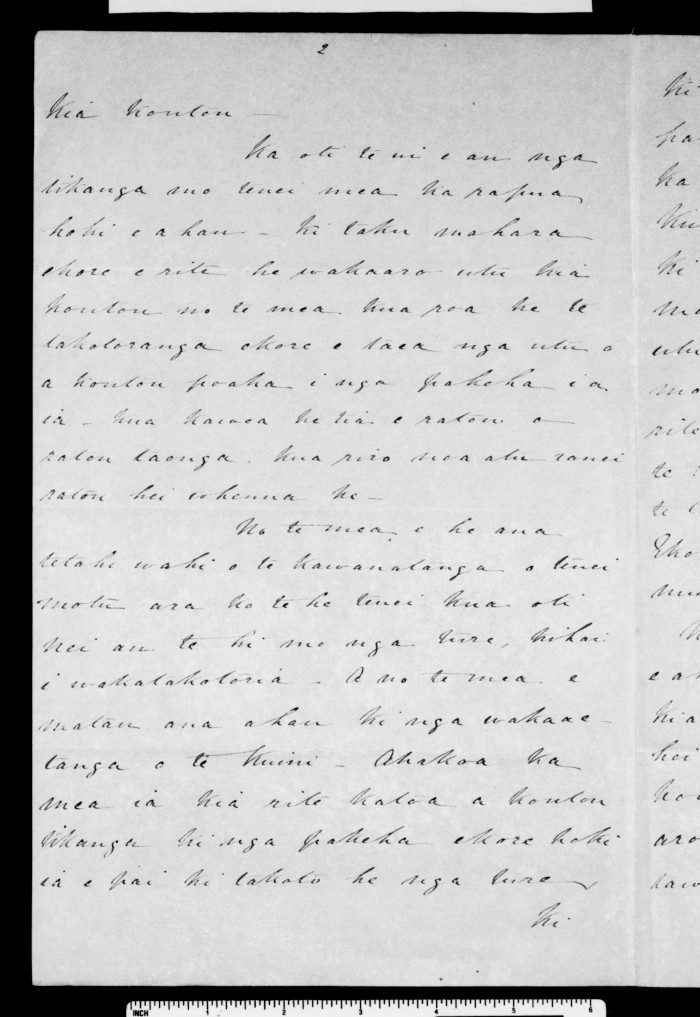 2
Kia koutou —
Ka oti te ui e au nga
tikanga mo tenei mea ka rapua
hoki e ahau — Ki taku mahara
ekore e rite he wakaaro utu kia
koutou no te mea kua roa ke te
takotoranga ekore e taea nga utu o
a koutou poaka i nga pakeha i a
ia — kua kawea ketia e ratou o
ratou taonga, kua riro noa atu ranei
ratou hei whenua ke —
No te mea e he ana
tetahi wahi o te kawanatanga o tenei
motu ara ko te he tenei kua oti
nei au te ki mo nga ture, kihai
i wakatakotoria — A no te mea e
matau ana ahau ki nga wakaae-
tanga o te Kuini — Ahakoa ka
mea ia kia rite katoa a koutou
tikanga ki nga pakeha ekore hoki
ia e pai ki takoto he nga ture,
Ki
Ki
pa
ka
Ku
Ki
mo
utu
mo
rite
te
te
Eko
mu
e a
kia
hei
ko
aro
taw